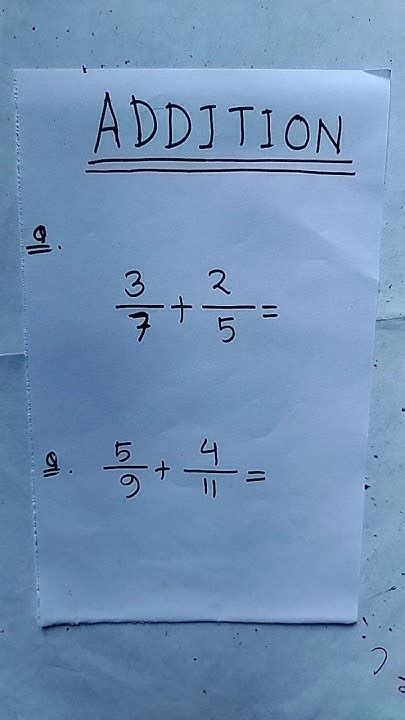 ADDITION
Q.
3/7 + 2/5 =
Q. 5/9 + 4/11 =